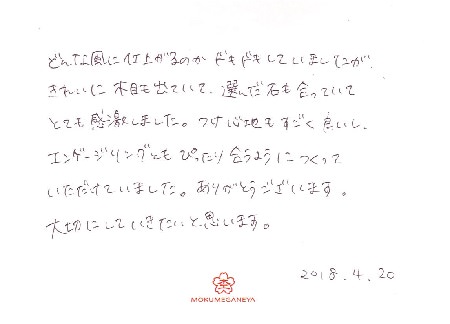 どんな風に仕上がるのかドキドキしていましたが、
きれいに木目も出ていて、選んだ石も合っていて
とても感激しました。つけ心地もすごく良いし、
エンゲージリングともぴったり合うようにつくって
いただけていました。ありがとうございます。
大切にしていきたいと思います。
2018.4.20
MOKUMEGANEYA